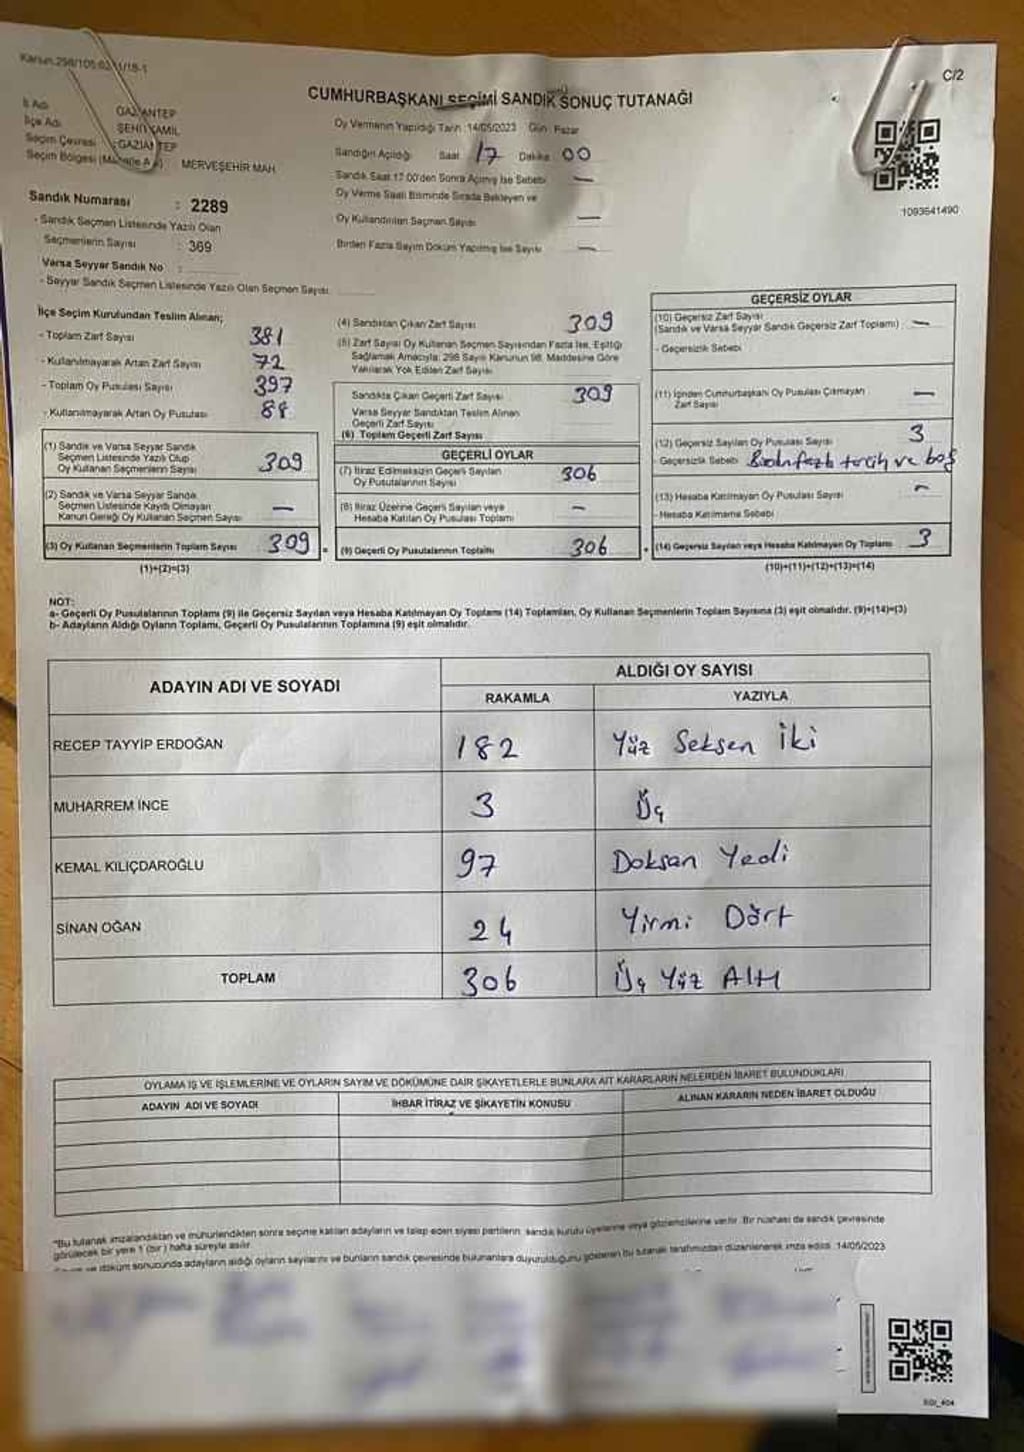 Kanun.298/105
C/2
CUMHURBAŞKANI SEÇİMİ SANDIK SONUÇ TUTANAĞI
İl Adı GAZİANTEP
İlçe Adı ŞEHİTKAMİL
Seçim Çevresi : GAZİANTEP
Seçim Bölgesi MERVEŞEHİR MAH.
Sandık Numarası : 2289
- Sandık Seçmen Listesinde Yazılı Olan
Seçmenlerin Sayısı : 369
Varsa Seyyar Sandık No :
- Seyyar Sandık Seçmen Listesinde Yazılı Olan Seçmen Sayısı
Oy Vermenin Yapıldığı Tarih :14/05/2023 Gün : Pazar
Sandığın Açıldığı Saat 17 Dakika 00
Sandık Saat 17.00'den Sonra Açılmış İse Sebebi —
Oy Verme Saati Bitiminde Sırada Bekleyen ve
Oy Kullandırılan Seçmen Sayısı —
Birden Fazla Sayım Döküm Yapılmış İse Sayısı —
1093641490
İlçe Seçim Kurulundan Teslim Alınan;
- Toplam Zarf Sayısı 381
- Kullanılmayarak Artan Zarf Sayısı 72
- Toplam Oy Pusulası Sayısı 397
- Kullanılmayarak Artan Oy Pusulası 88
(1) Sandık ve Varsa Seyyar Sandık
Seçmen Listesinde Yazılı Olup
Oy Kullanan Seçmenlerin Sayısı 309
(2) Sandık ve Varsa Seyyar Sandık
Seçmen Listesinde Kayıtlı Olmayan
Kanun Gereği Oy Kullanan Seçmen Sayısı —
(3) Oy Kullanan Seçmenlerin Toplam Sayısı 309
(1)+(2)=(3)
(4) Sandıktan Çıkan Zarf Sayısı 309
(5) Zarf Sayısı Oy Kullanan Seçmen Sayısından Fazla İse, Eşitliği
Sağlamak Amacıyla; 298 Sayılı Kanunun 98. Maddesine Göre
Yakılarak Yok Edilen Zarf Sayısı
Sandıkta Çıkan Geçerli Zarf Sayısı 309
Varsa Seyyar Sandıktan Teslim Alınan
Geçerli Zarf Sayısı
(6) Toplam Geçerli Zarf Sayısı
GEÇERLİ OYLAR
(7) İtiraz Edilmeksizin Geçerli Sayılan
Oy Pusulalarının Sayısı 306
(8) İtiraz Üzerine Geçerli Sayılan veya
Hesaba Katılan Oy Pusulası Toplamı —
(9) Geçerli Oy Pusulalarının Toplamı 306
GEÇERSİZ OYLAR
(10) Geçersiz Zarf Sayısı
(Sandık ve Varsa Seyyar Sandık Geçersiz Zarf Toplamı) —
- Geçersizlik Sebebi
(11) İçinden Cumhurbaşkanı Oy Pusulası Çıkmayan
Zarf Sayısı —
(12) Geçersiz Sayılan Oy Pusulası Sayısı 3
- Geçersizlik Sebebi tercih ve boş
(13) Hesaba Katılmayan Oy Pusulası Sayısı —
- Hesaba Katılmama Sebebi
(14) Geçersiz Sayılan veya Hesaba Katılmayan Oy Toplamı 3
(10)+(11)+(12)+(13)=(14)
NOT:
a- Geçerli Oy Pusulalarının Toplamı (9) ile Geçersiz Sayılan veya Hesaba Katılmayan Oy Toplamı (14) Toplamları, Oy Kullanan Seçmenlerin Toplam Sayısına (3) eşit olmalıdır. (9)+(14)=(3)
b- Adayların Aldığı Oyların Toplamı, Geçerli Oy Pusulalarının Toplamına (9) eşit olmalıdır.
ADAYIN ADI VE SOYADI
ALDIĞI OY SAYISI
RAKAMLA YAZIYLA
RECEP TAYYİP ERDOĞAN 182 Yüz Seksen İki
MUHARREM İNCE 3 Üç
KEMAL KILIÇDAROĞLU 97 Doksan Yedi
SİNAN OĞAN 24 Yirmi Dört
TOPLAM 306 Üç Yüz Altı
OYLAMA İŞ VE İŞLEMLERİNE VE OYLARIN SAYIM VE DÖKÜMÜNE DAİR ŞİKAYETLERLE BUNLARA AİT KARARLARIN NELERDEN İBARET BULUNDUKLARI
ADAYIN ADI VE SOYADI İHBAR İTİRAZ VE ŞİKAYETİN KONUSU ALINAN KARARIN NEDEN İBARET OLDUĞU
*Bu tutanak imzalandıktan ve mühürlendikten sonra seçime katılan adayların ve talep eden siyasi partilerin sandık kurulu üyelerine veya gözlemcilerine verilir. Bir nüshası da sandık çevresinde
görülecek bir yere 1 (bir) hafta süreyle asılır.
döküm sonucunda adayların aldığı oyların sayılarını ve bunların sandık çevresinde bulunanlara duyurulduğunu gösteren bu tutanak tarafımızdan düzenlenerek imza edildi. 14/05/2023